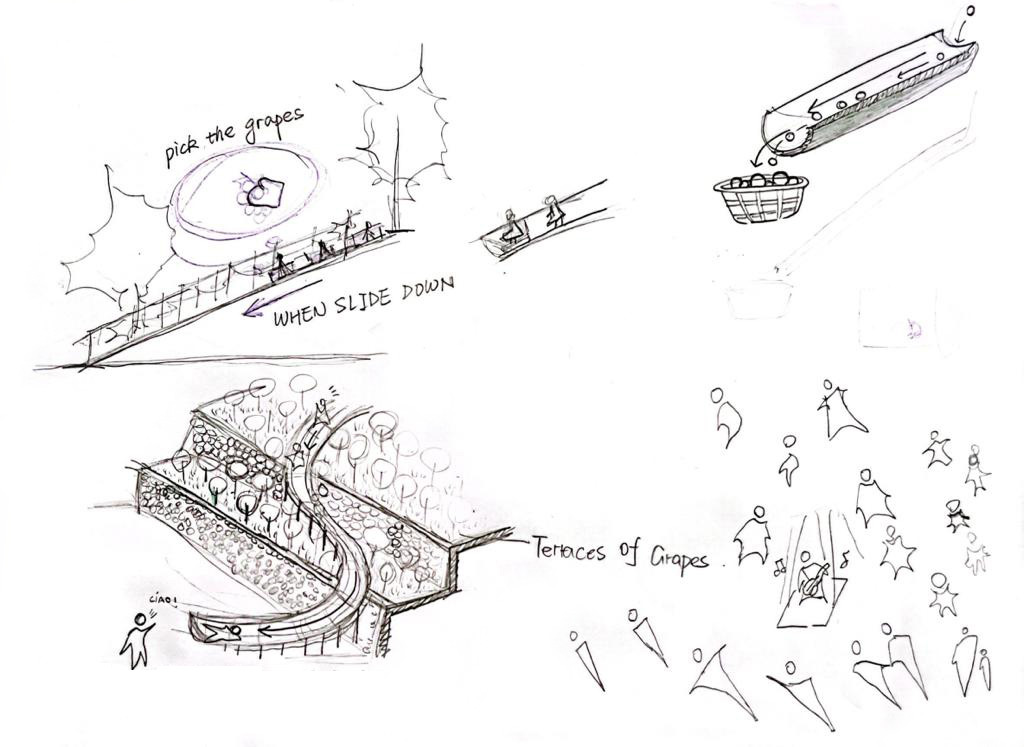 pick the grapes
WHEN SLIDE DOWN
Terraces of Grapes.
CIAO!